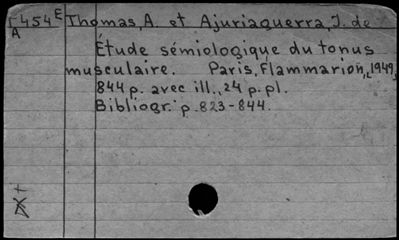 454ᴱ Thomas, A. et Ajuriaguerra, J. de
A
Étude sémiologique du tonus
musculaire. Paris, Flammarion, [1949]
844 p. avec ill., 24 p. pl.
Bibliogr. p. 823-844.